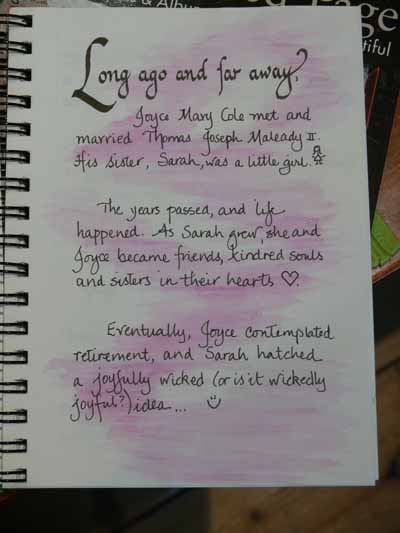 & Album
Page
tiful
Long ago and far away,
Joyce Mary Cole met and
married Thomas Joseph Maleady II.
His sister, Sarah, was a little girl.
The years passed, and life
happened. As Sarah grew, she and
Joyce became friends, kindred souls
and sisters in their hearts ♡.
Eventually, Joyce contemplated
retirement, and Sarah hatched
a joyfully wicked (or is it wickedly
joyful?) idea...